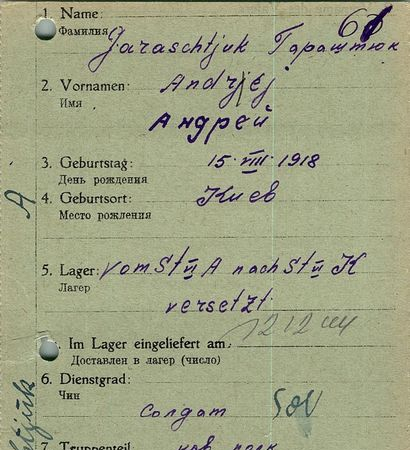 1. Name:
Фамилия
61
Jaraschtjuk Гараштюк
2. Vornamen: Andrjej
Имя
Андрей
3. Geburtstag: 15. VIII. 1918
День рождения
4. Geburtsort: Киев
Место рождения
A
5. Lager: vom St VI A nach St VI K
Лагер
versetzt
12 12
. Im Lager eingeliefert am:
Доставлен в лагер (число)
6. Dienstgrad:
Чин
Солдат
7. Truppenteil: